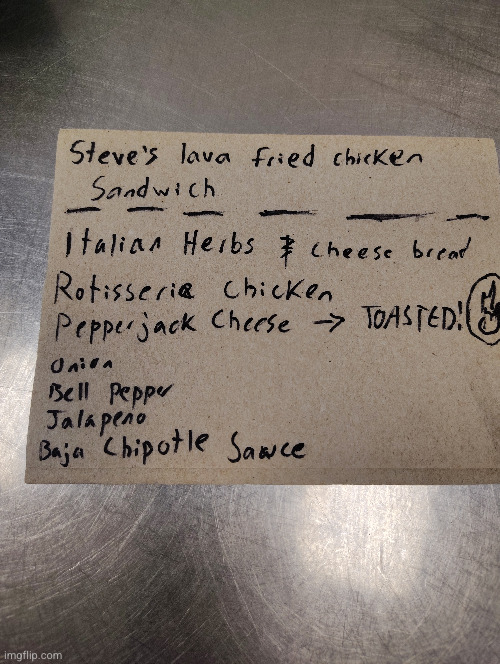 Steve's lava fried chicken
Sandwich
Italian Herbs & cheese bread
Rotisserie Chicken
Pepperjack Cheese → TOASTED!
Onion
Bell Pepper
Jalapeno
Baja Chipotle Sauce
imgflip.com